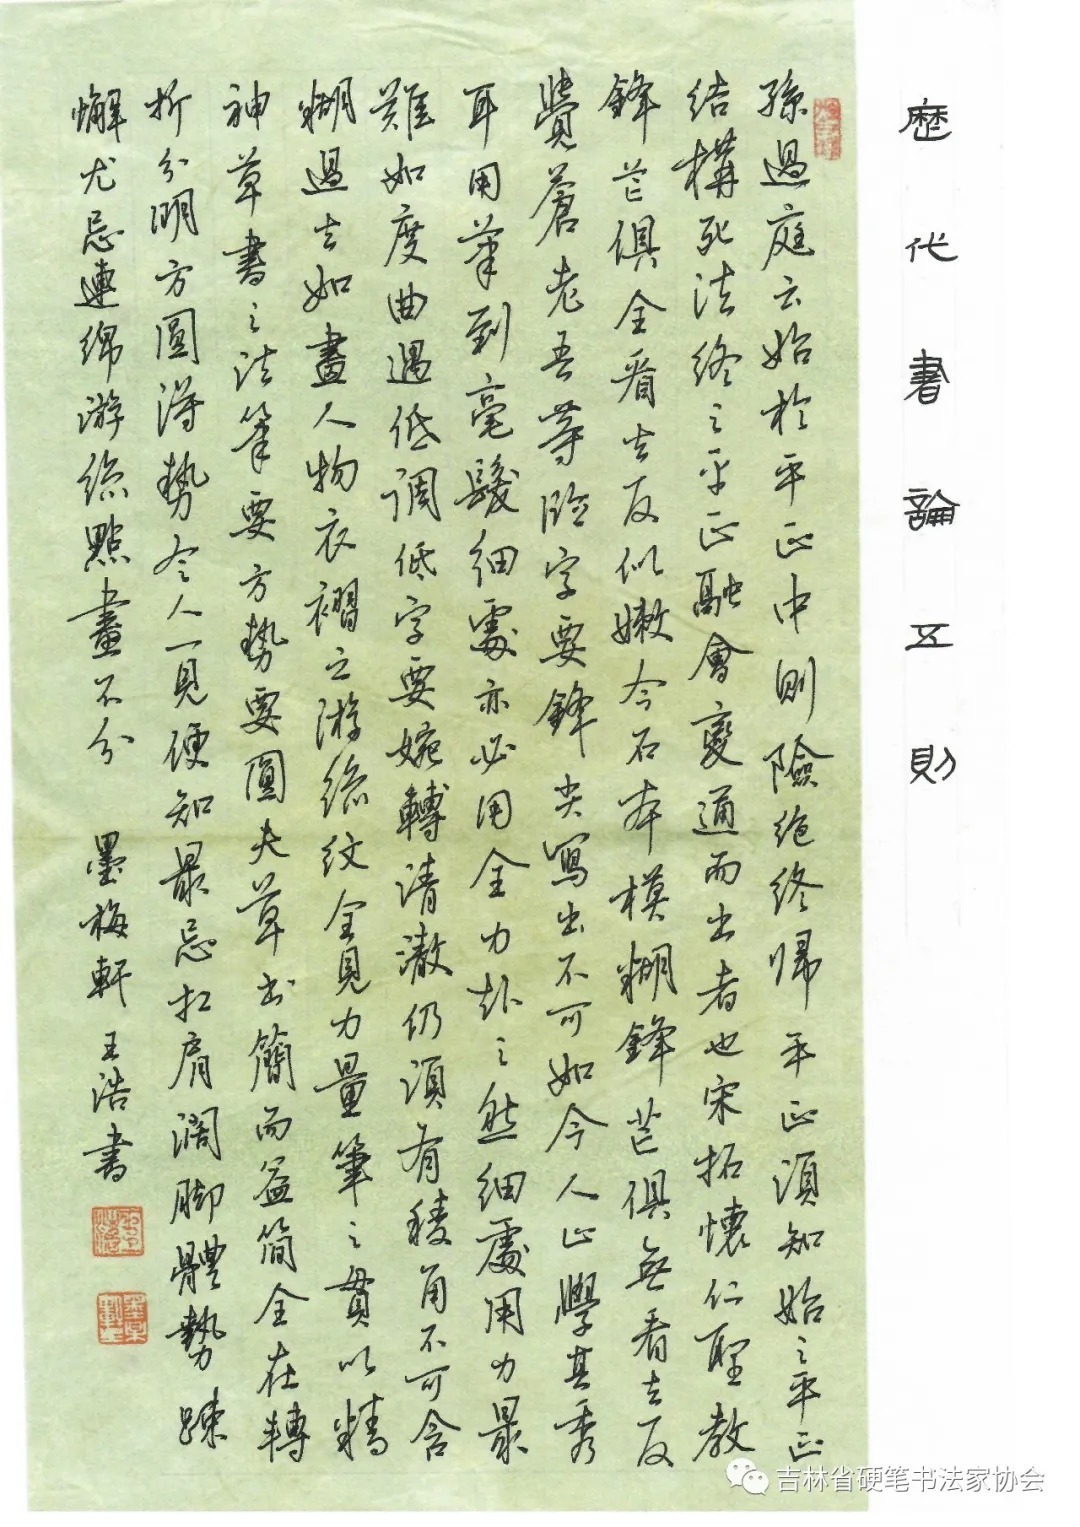 歷代書論五則
孫過庭云始於平正中則險絶終歸平正須知始之平正
結構死法終之平正融會變通而出者也宋拓懷仁聖教
鋒芒俱全看去反似嫩今石本模糊鋒芒俱無看去反
覺蒼老吾等臨字要鋒尖寫出不可如今人止學其秃
耳用筆到毫髮細處亦必用全力赴之然細處用力最
難如度曲遇低調低字要婉轉清澈仍須有稜角不可含
糊過去如畫人物衣褶之游絲紋全見力量筆之貫以精
神草書之法筆要方勢要圓夫草書簡而益簡全在轉
折分明方圓得勢令人一見便知最忌扛肩濶脚體勢踈
懈尤忌連綿游絲點畫不分 墨梅軒王浩書
吉林省硬笔书法家协会